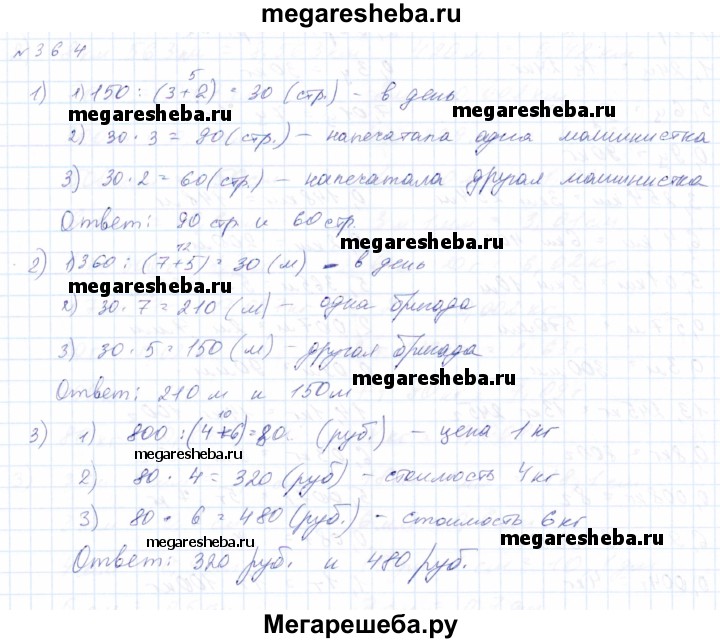 megaresheba.ru
№364
1) 1) 150 : (3+2) = 30 (стр.) – в день
5
megaresheba.ru
2) 30 · 3 = 90 (стр.) – напечатала одна машинистка
3) 30 · 2 = 60 (стр.) – напечатала другая машинистка
megaresheba.ru
Ответ: 90 стр и 60 стр.
megaresheba.ru
2) 1) 360 : (7+5) = 30 (м) – в день
12
2) 30 · 7 = 210 (м) – одна бригада
3) 30 · 5 = 150 (м) – другая бригада
Ответ: 210 м и 150 м
megaresheba.ru
3) 1) 800 : (4+6) = 80 (руб.) – цена 1 кг
10
megaresheba.ru
2) 80 · 4 = 320 (руб) – стоимость 4 кг
3) 80 · 6 = 480 (руб.) – стоимость 6 кг
megaresheba.ru
megaresheba.ru
Ответ: 320 руб. и 480 руб.
Мегарешеба.ру